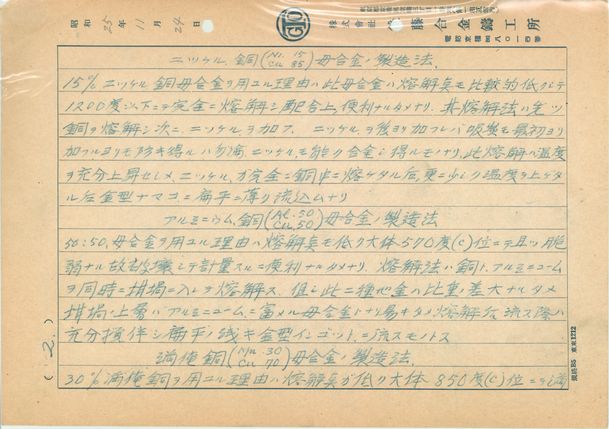 昭和25年11月24日
株式会社 藤合金鋳工所
ニッケル、銅(Ni. 15 Cu. 85)母合金ノ製造法.
15% ニッケル銅母合金ヲ用ユル理由ハ此母合金ハ熔解奌モ比較的低クシテ
1200度以下ニテ完全ニ熔解シ配合上便利ナルタメナリ、其熔解法ハ先ツ
銅ヲ熔解シ次ニ、ニッケルヲ加フ、ニッケルヲ後ヨリ加フレバ吸襲モ最初ヨリ
加フルヨリモ防キ得ルハ勿論ニッケルモ能ク合金シ得ルモノナリ、此熔解ハ温度
ヲ充分上昇セシメ、ニッケルガ完全ニ銅中ニ熔ケタル后、更ニ少シク温度ヲ上ゲタ
ル后金型ナマコニ扁平ニ薄ク流込ムナリ
アルミニウム、銅(Al. 50 Cu. 50)母合金ノ製造法
50:50,母合金ヲ用ユル理由ハ熔解奌モ低ク大体570度(C)位ニテ且ツ脆
弱ナル故破壊シテ計量スルニ便利ナルタメナリ、熔解法ハ銅ト、アルミニューム
ヲ同時ニ坩堝ニ入レテ熔解ス、但シ此二種地金ハ比重ノ差大ナルタメ
坩堝ノ上層ハアルミニュームニ富メル母合金トナリ易キタメ熔解后流ス際ハ
充分攪伴シ扁平ノ浅キ金型インゴットニ流スモノトス
満俺銅(Mn. 30 Cu. 70)母合金ノ製造法.
30% 満俺銅ヲ用ユル理由ハ熔解奌ガ低ク大体850度(C)位ニテ満
(2.)